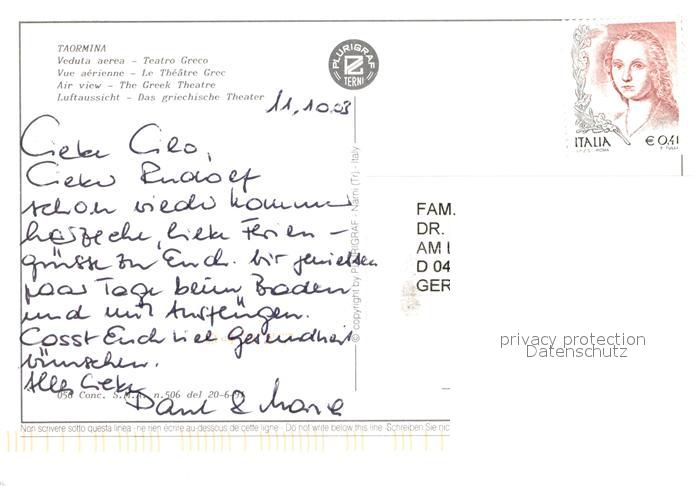 TAORMINA
Veduta aerea - Teatro Greco
Vue aérienne - Le Théâtre Grec
Air view - The Greek Theatre
Luftaussicht - Das griechische Theater
PLURIGRAF
TERNI
ITALIA
€ 0,41
11.10.03
Liebe Cilo,
Lieber Rudolf
schon wieder kommen
herzliche, liebe Ferien-
grüsse zu Euch. Wir geniessen
paar Tage beim Baden
und mit Ausflügen.
Lasst Euch viel Gesundheit
wünschen.
Alles Liebe
Paul &
© copyright by PLURIGRAF - Narni (Tr) - Italy
FAM.
DR.
AM
D 04
GER
privacy protection
Datenschutz
056 Conc. S.M.A. n.506 del 20-6-
Non scrivere sotto questa linea - ne rien écrire au-dessous de cette ligne - Do not write below this line - Schreiben Sie nic